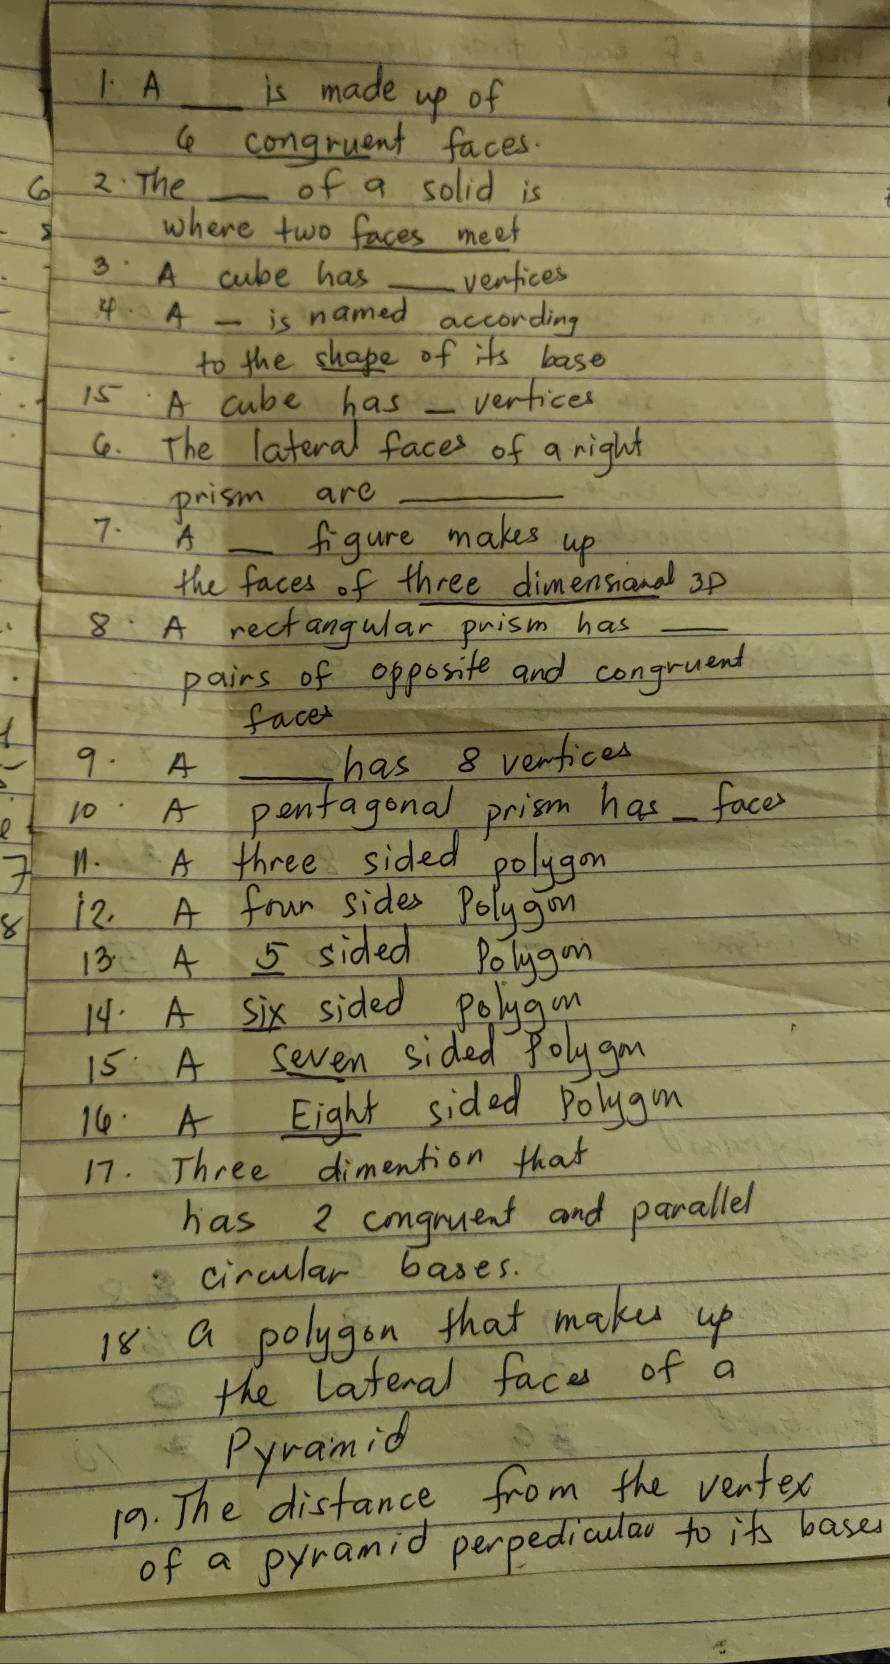 1. A ___ is made up of
6 congruent faces.
6 2. The ___ of a solid is
s where two faces meet
3. A cube has ___ vertices
4. A _ is named according
to the shape of its base
15. A cube has _ vertices
6. The lateral faces of a right
prism are ______
7. A __ figure makes up
the faces of three dimensianal 3D
8. A rectangular prism has ___
pairs of opposite and congruent
faces
9. A ____ has 8 vertices
10. A pentagonal prism has _ faces
7 11. A three sided polygon
8 12. A four sides Polygon
13. A 5 sided Polygon
14. A six sided polygon
15. A seven sided Polygon
16. A Eight sided Polygon
17. Three dimention that
has 2 congruent and parallel
circular bases.
18. a polygon that makes up
the Lateral faces of a
Pyramid
19. The distance from the vertex
of a pyramid perpedicular to its bases